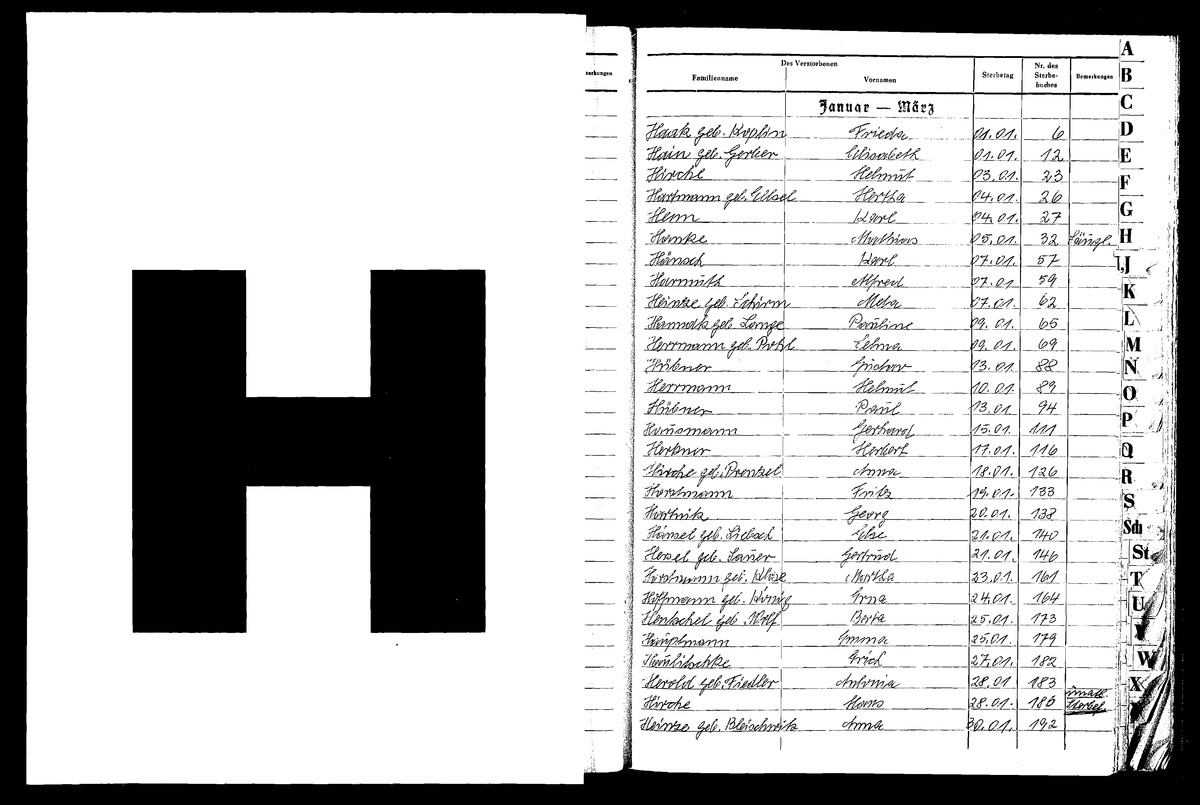 H
erkungen
Des Verstorbenen
Familienname Vornamen Sterbetag Nr. des Sterbe-buches Bemerkungen
Januar — März
Haak geb. Koplin Frieda 01.01. 6
Hain geb. Gerber Elisabeth 01.01. 12
Hirche Helmut 03.01. 23
Hartmann geb. Ellsel Hertha 04.01. 26
Henn Karl 04.01. 27
Hanke Mathias 05.01. 32 Säugl.
Hänsch Karl 07.01. 57
Harmuth Alfred 07.01. 59
Heintze geb. Schirm Meta 07.01. 62
Hannack geb. Lange Pauline 09.01. 65
Herrmann geb. Selma 09.01. 69
Hübner Gustav 13.01. 88
Herrmann Helmut 10.01. 89
Hübner Paul 13.01. 94
Hausmann Gerhard 15.01. 111
Herkner Herbert 17.01. 116
Hirche geb. Prenzel Anna 18.01. 126
Horstmann Fritz 19.01. 133
Hartnik Georg 20.01. 138
Hänsel geb. Liebsch Else 21.01. 140
Hesel geb. Sauer Gertrud 21.01. 146
Horstmann geb. Klose Martha 23.01. 161
Hoffmann geb. König Erna 24.01. 164
Hentschel geb. Wolf Berta 25.01. 173
Hauptmann Emma 25.01. 179
Haulitschke Erich 27.01. 182
Herold geb. Fiedler Antonia 28.01. 183
Hirche Hans 28.01. 186
Heintze geb. Bleischwitz Anna 30.01. 192
A
B
C
D
E
F
G
H
I,J
K
L
M
N
O
P
Q
R
S
Sch
St
T
U
V
W
X